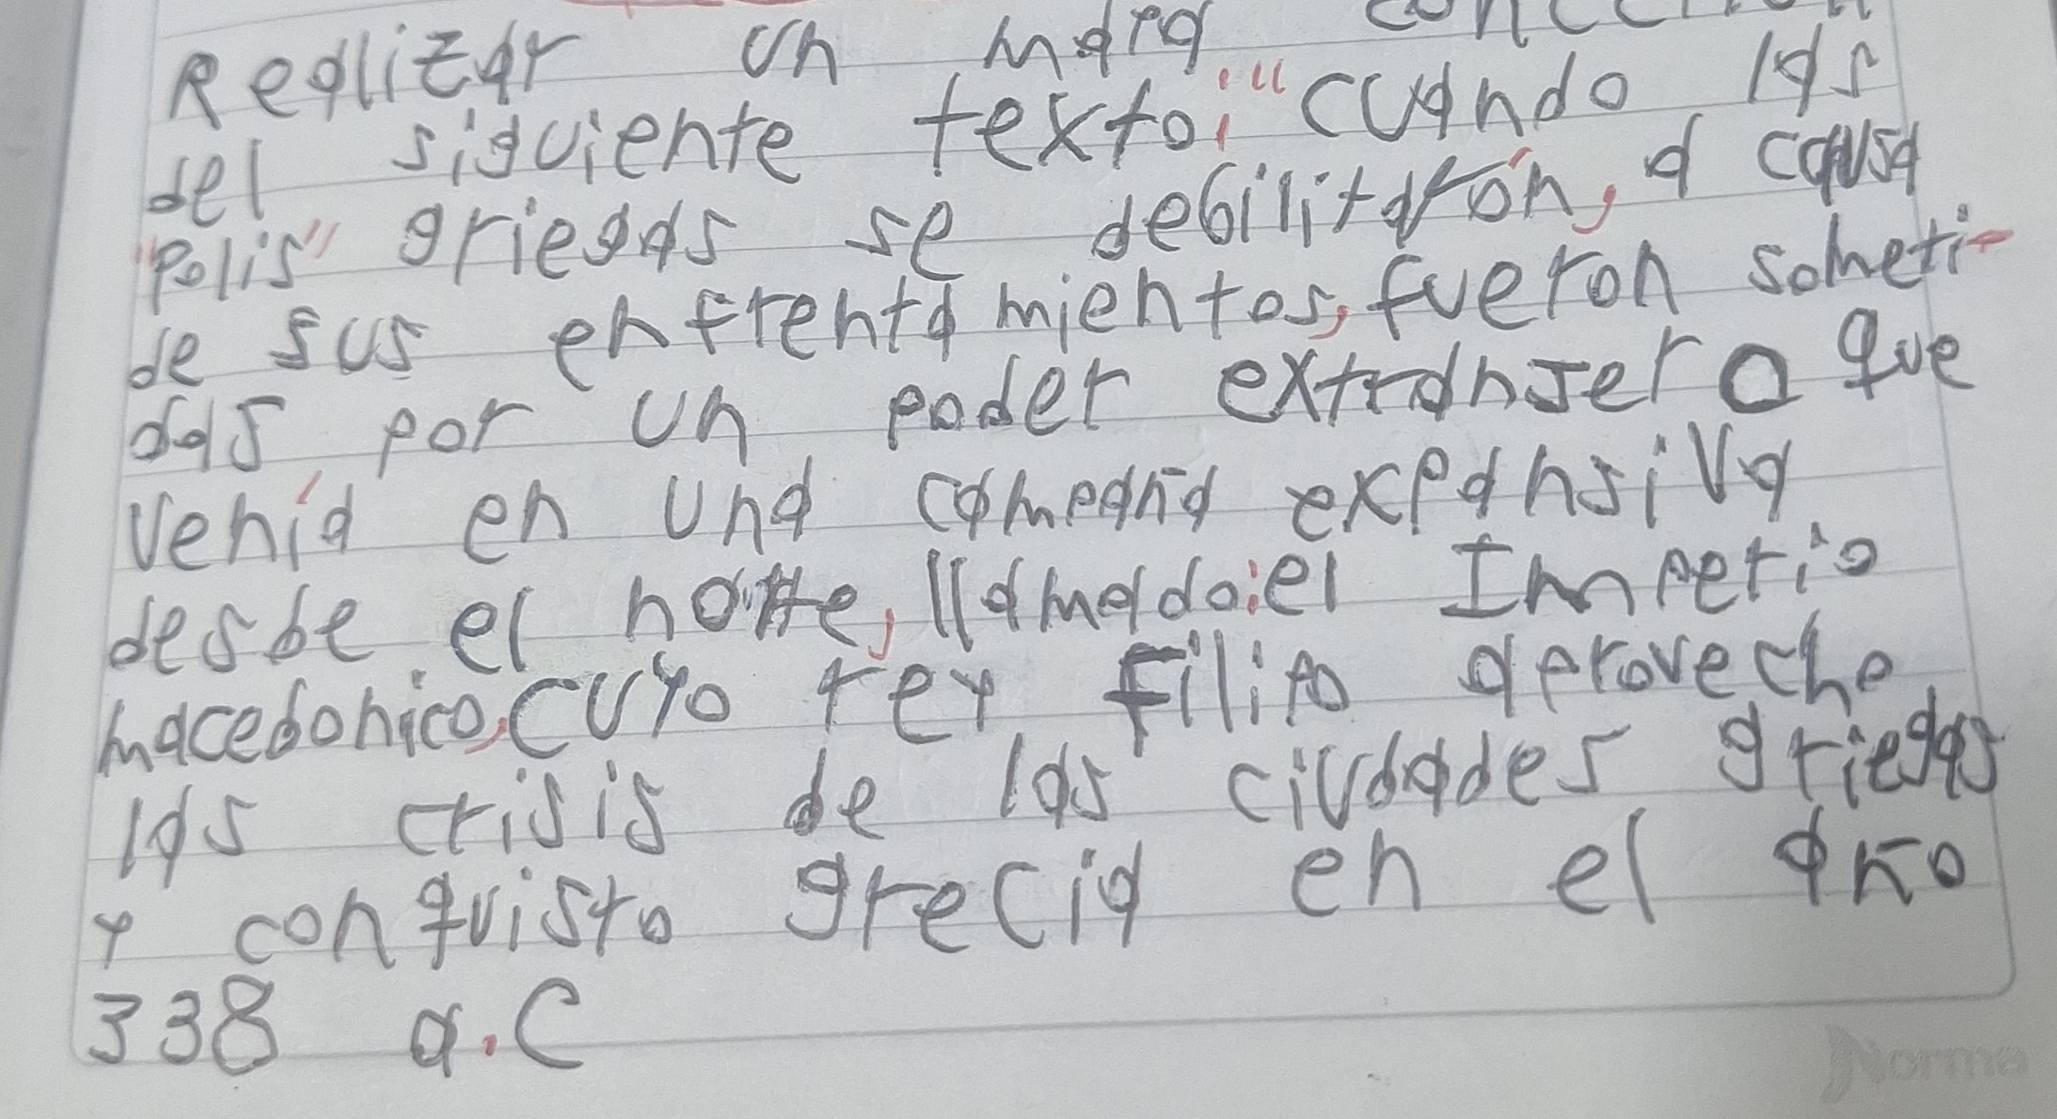 Realizar un mapa
del siguiente texto: "cuando las
"Polis" griegas se debilitarón, a causa
de sus enfrentamientos, fueron someti-
das por un poder extranjero que
venía en una campaña expansiva
desde el norte, llamado: el Imperio
macedonico, cuyo rey Filipo aproveche
las crisis de las ciudades griegas
y conquisto grecia en el año
338 a.C
Norma